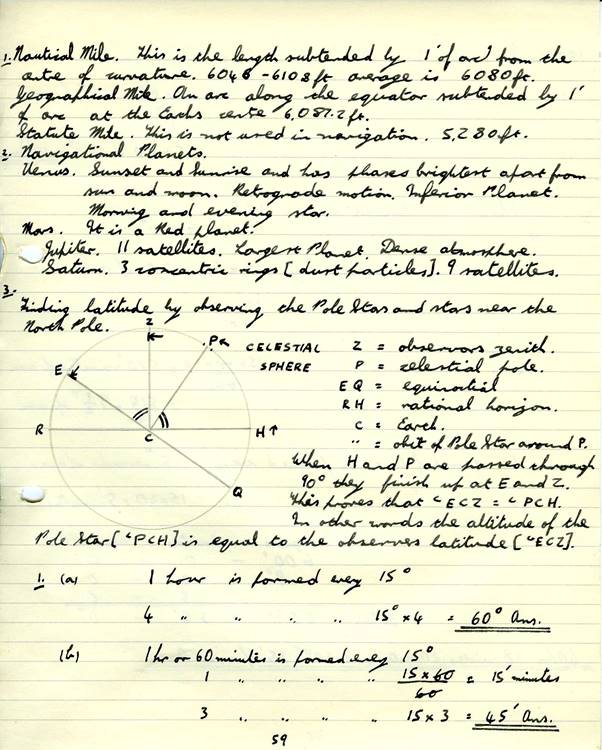 1. Nautical Mile. This is the length subtended by 1' of arc from the
centre of curvature. 6046 - 6108 ft average is 6080 ft.
Geographical Mile. An arc along the equator subtended by 1'
of arc at the Earths centre 6,087.2 ft.
Statute Mile. This is not used in navigation. 5,280 ft.
2. Navigational Planets.
Venus. Sunset and Sunrise and has phases brightest apart from
sun and moon. Retrograde motion. Inferior Planet.
Morning and evening star.
Mars. It is a Red planet.
Jupiter. 11 satellites. Largest Planet. Dense atmosphere.
Saturn. 3 concentric rings [dust particles]. 9 satellites.
3. Finding latitude by observing the Pole Star and stars near the
North Pole.
Z
P
E
R
C
H
Q
CELESTIAL
SPHERE
Z = observors zenith.
P = celestial pole.
EQ = equinoctial
RH = rational horizon.
C = Earth.
" = obit of Pole Star around P.
When H and P are passed through
90° they finish up at E and Z.
This proves that ∠ECZ = ∠PCH.
In other words the altitude of the
Pole Star [∠PCH] is equal to the observers latitude [∠ECZ].
1. (a) 1 hour is formed every 15°
4 " " " " 15° x 4 = 60° Ans.
(b) 1 hr or 60 minutes is formed every 15°
1 " " " " 15 x 60 / 60 = 15' minutes
3 " " " " 15 x 3 = 45' Ans.
59